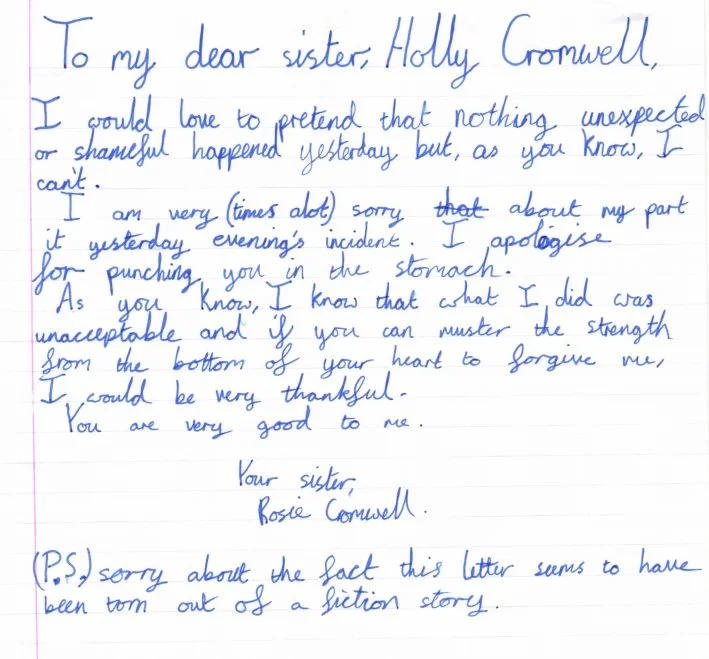 To my dear sister, Holly Cromwell,
I would love to pretend that nothing unexpected
or shameful happened yesterday but, as you know, I
can't.
I am very (times alot) sorry that about my part
it yesterday evening's incident. I apologise
for punching you in the stomach.
As you know, I know that what I did was
unacceptable and if you can muster the strength
from the bottom of your heart to forgive me,
I would be very thankful.
You are very good to me.
Your sister,
Rosie Cromwell.
(P.S.) sorry about the fact this letter seems to have
been torn out of a fiction story.